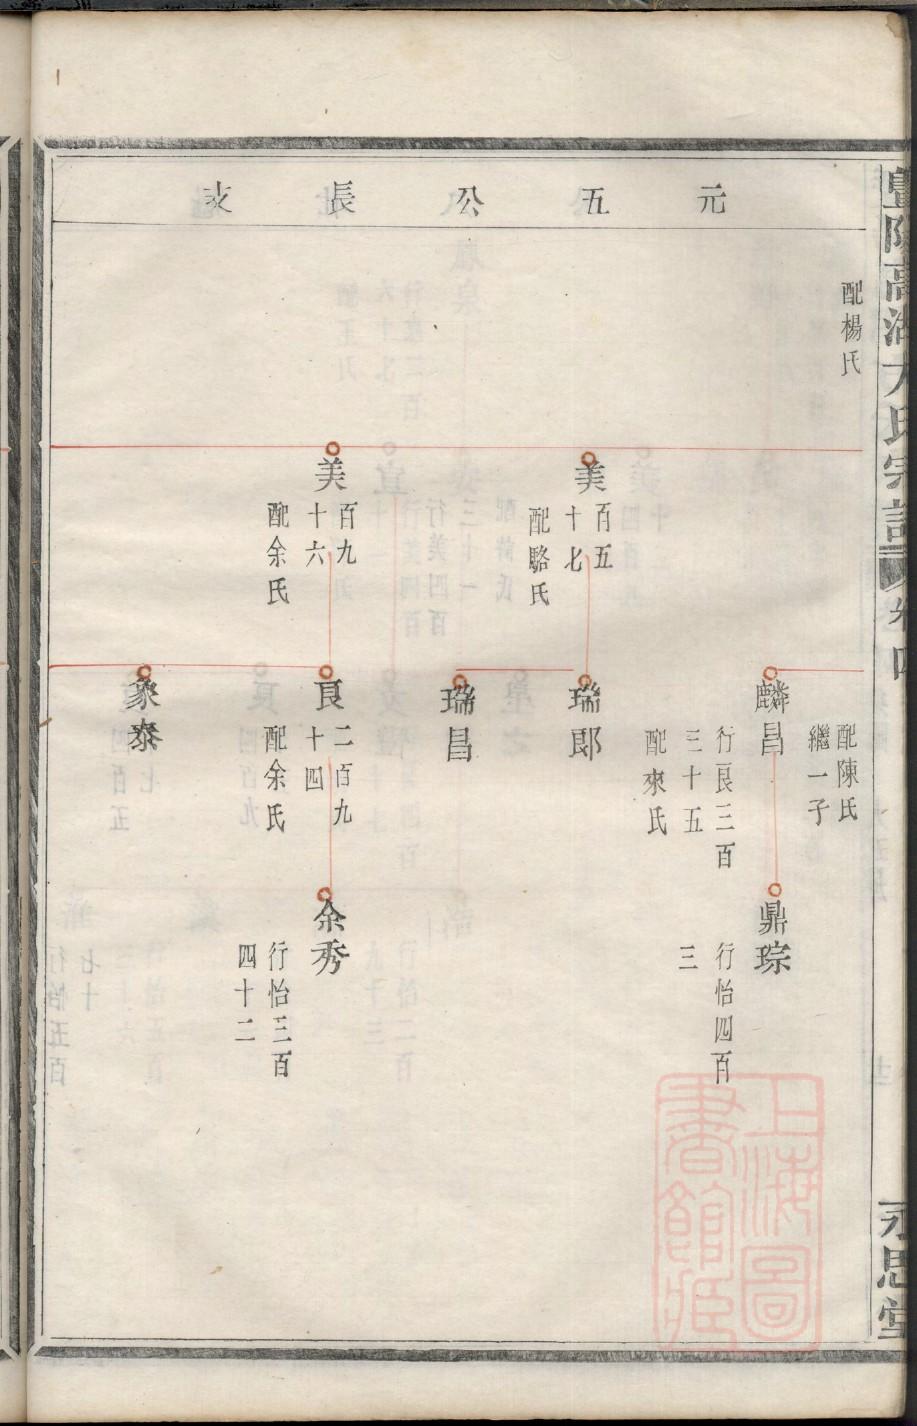 暨陽高湖
氏宗譜
卷四
永思堂
元五公長支
配楊氏
美
百五
十七
配駱氏
美
百九
十六
配余氏
配陳氏
繼一子
麟昌
行良三百
三十五
配來氏
瑞郎
瑞昌
良
二百九
十四
配余氏
象泰
鼎琮
行怡四百
三
余秀
行怡三百
四十二
上海圖
書館藏